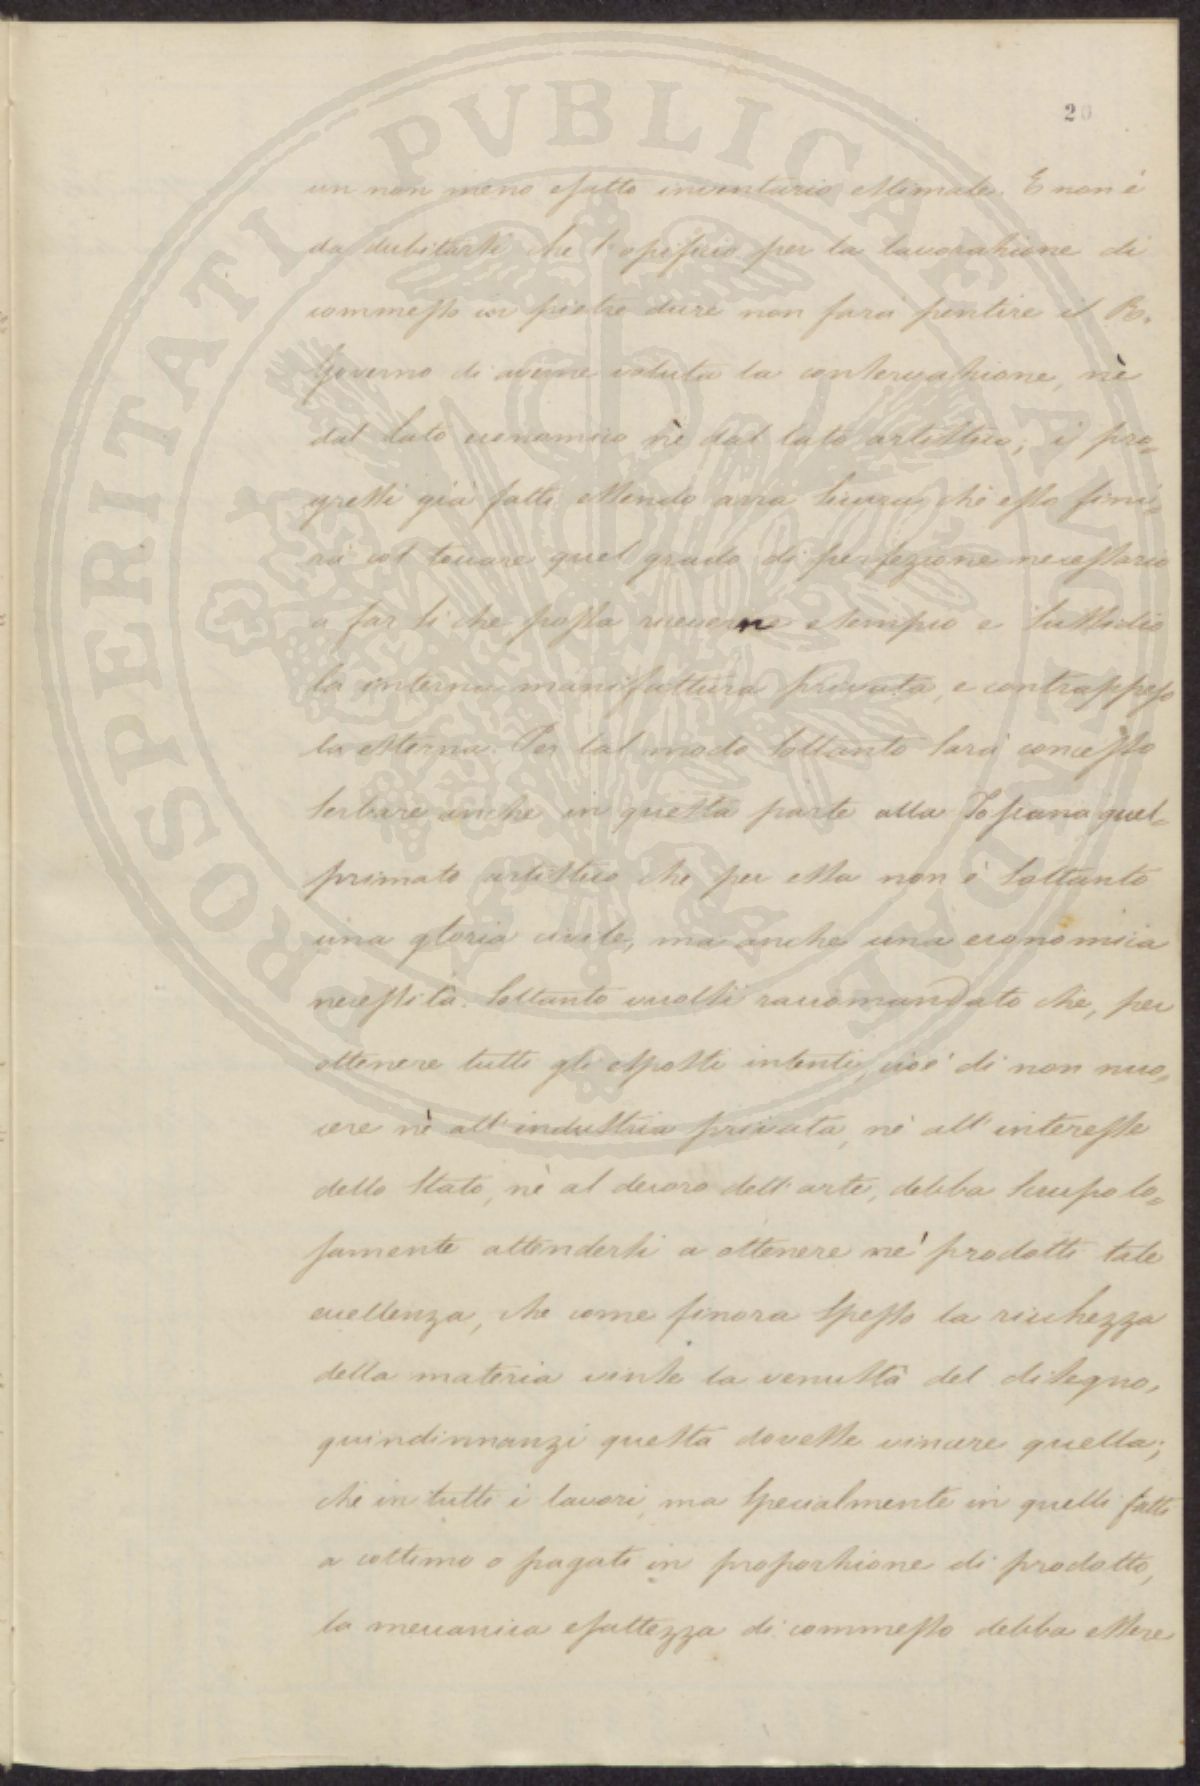 20
un non meno esatto inventario estimale. E non è
da dubitarsi che l'opificio per la lavorazione di
commesso in pietre dure non farà pentire il R.
Governo di averne voluta la conservazione, nè
dal lato economico nè dal lato artistico; i pro=
gressi già fatti essendo arra sicura che esso fini=
rà col toccare quel grado di perfezione necessario
a far sì che possa riceverne esempio e sussidio
la interna manifattura privata, e contrappeso
la esterna. Per tal modo soltanto sarà concesso
serbare anche in questa parte alla Toscana quel=
primato artistico che per essa non è soltanto
una gloria civile, ma anche una economica
necessità. Soltanto vuolsi raccomandato che, per
ottenere tutti gli esposti intenti, cioè di non nuo=
cere nè all'industria privata, nè all'interesse
dello Stato, nè al decoro dell'arte, debba scrupolo=
samente attendersi a ottenere ne' prodotti tale
eccellenza, che come finora spesso la ricchezza
della materia vinse la venustà del disegno,
quindinnanzi questa dovesse vincere quella;
che in tutti i lavori, ma specialmente in quelli fatti
a cottimo o pagati in proporzione di prodotto,
la meccanica esattezza di commesso debba essere
PROSPERITATI PVBLICAE AVGENDAE